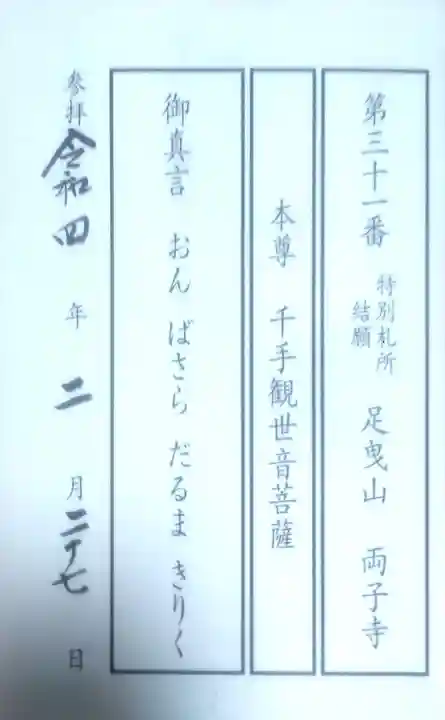 第三十一番 特別札所 結願 足曳山 両子寺
本尊 千手観世音菩薩
御真言 おん ばさら だるま きりく
参拝 令和四年 二月二十七日